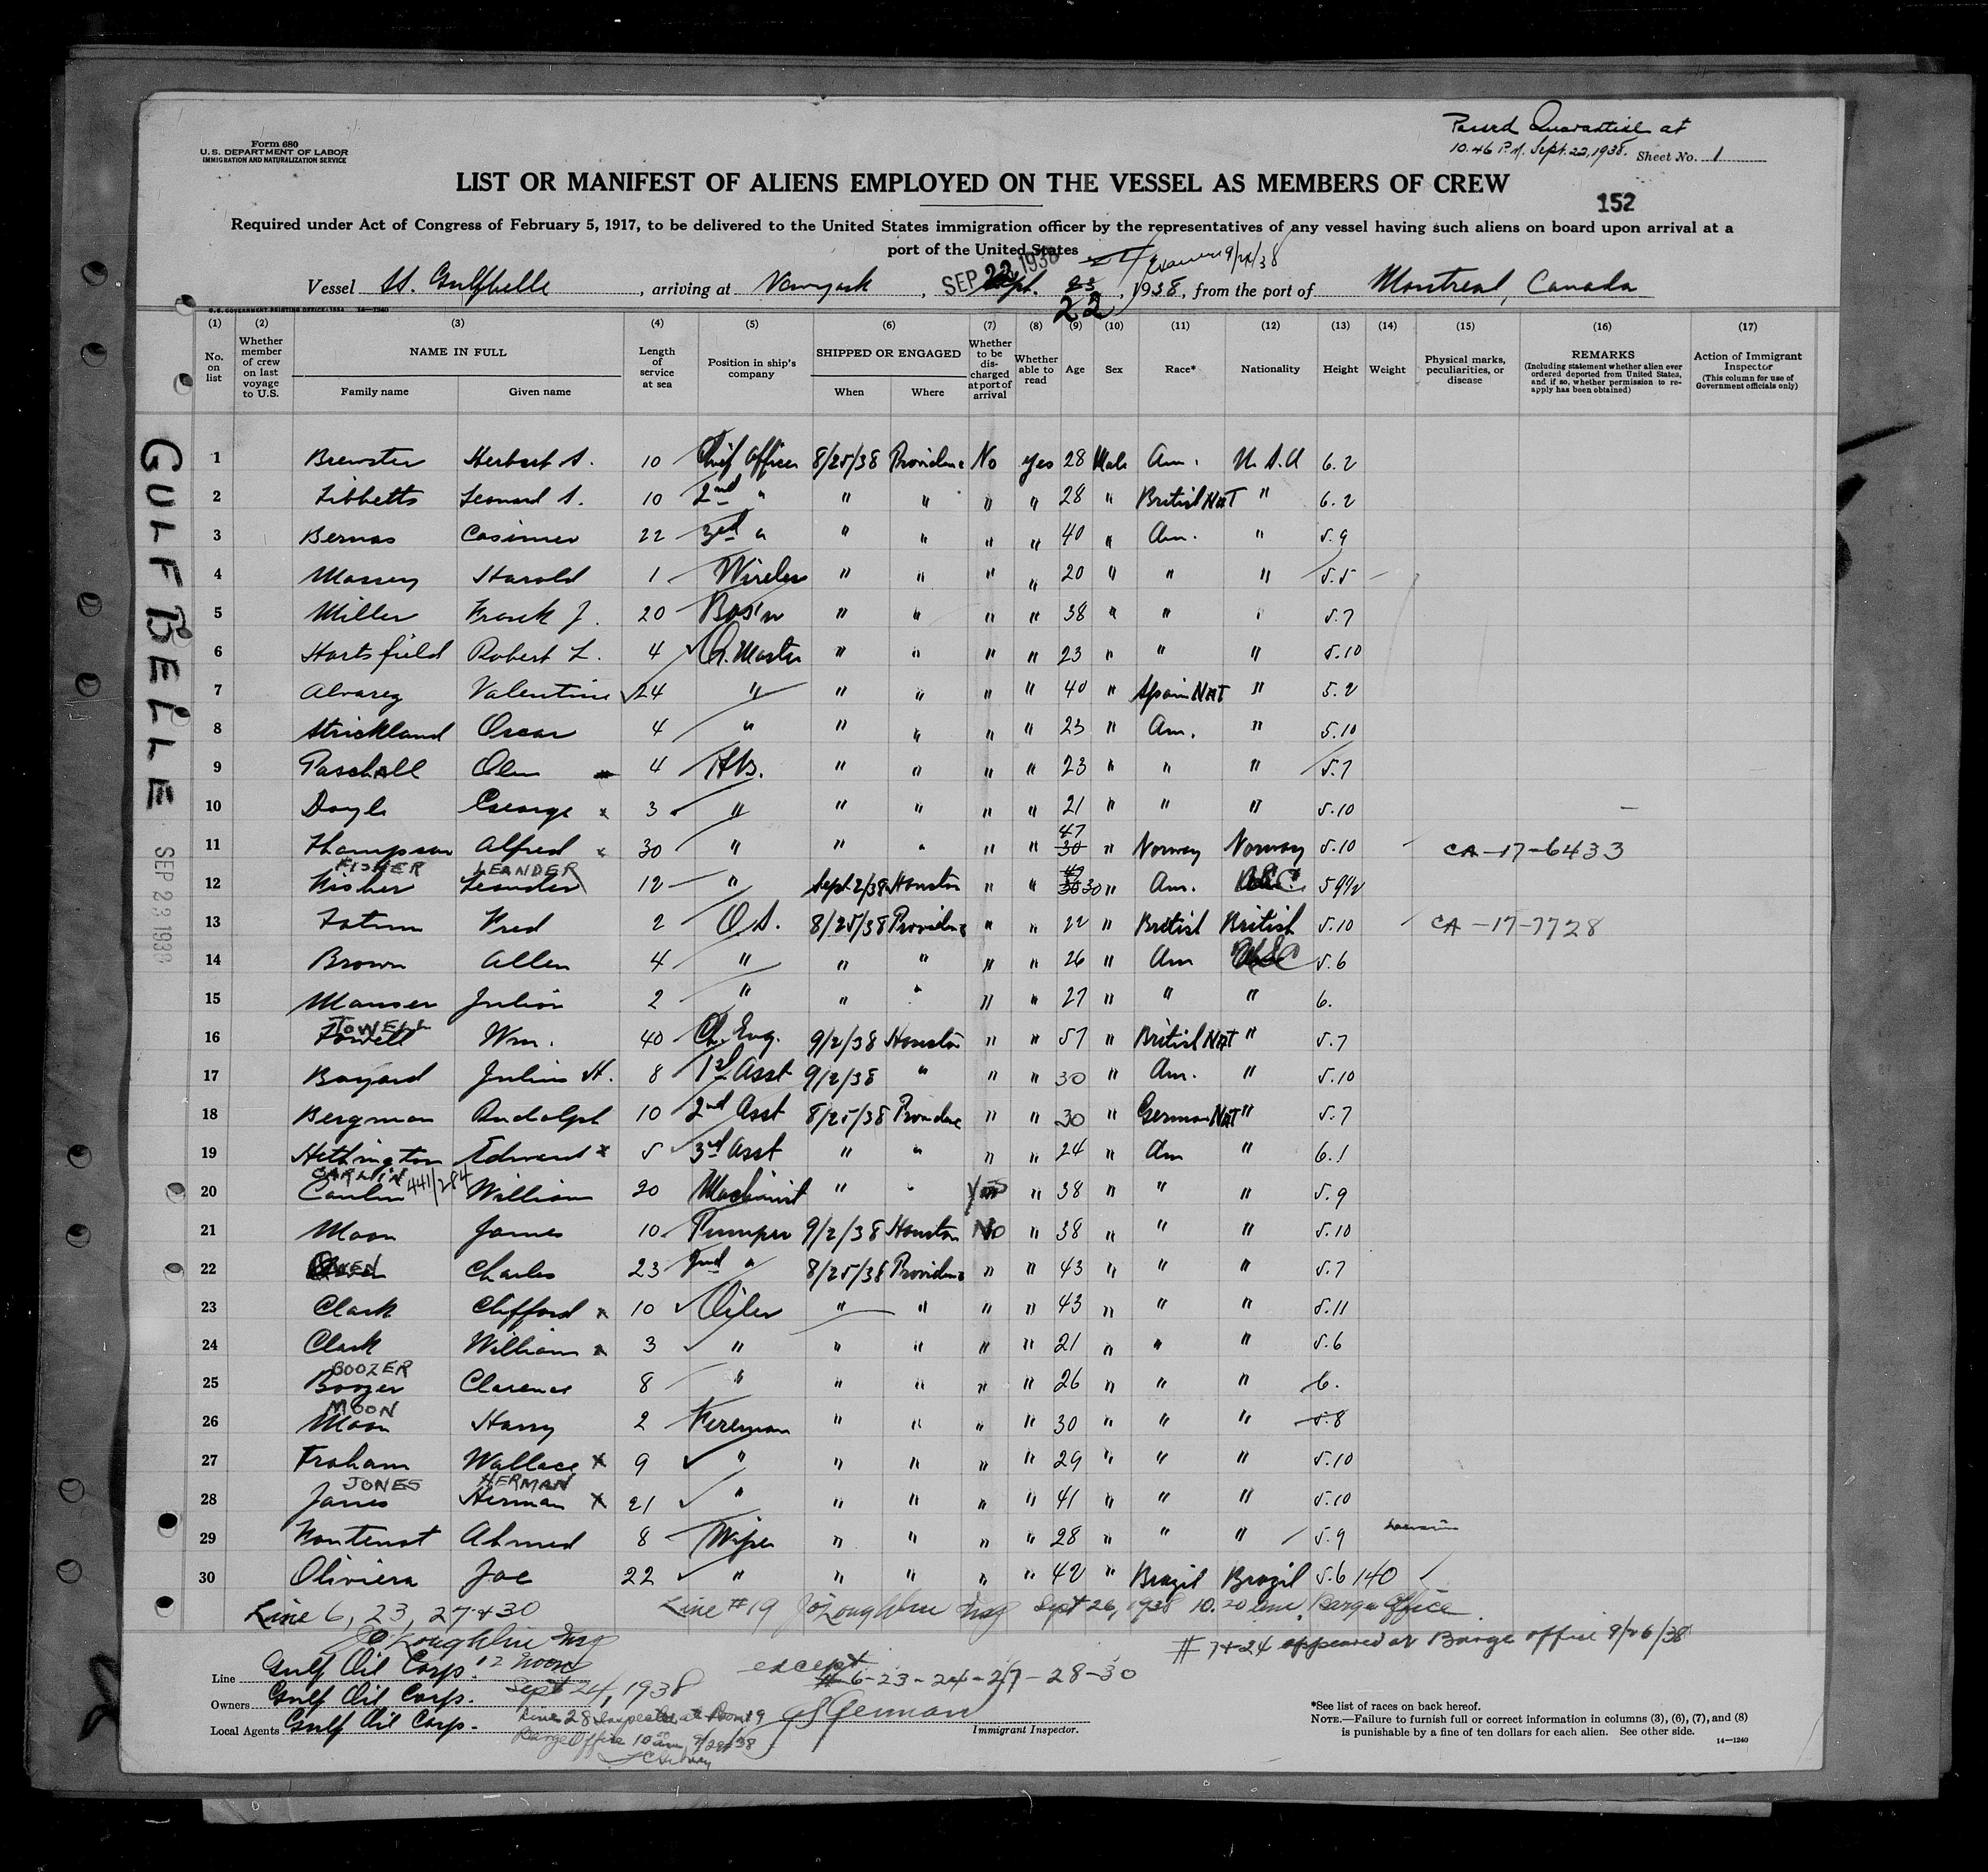 Form 680
U. S. DEPARTMENT OF LABOR
IMMIGRATION AND NATURALIZATION SERVICE
Passed Quarantine at
10.46 P.M. Sept. 22, 1938. Sheet No. 1
LIST OR MANIFEST OF ALIENS EMPLOYED ON THE VESSEL AS MEMBERS OF CREW
152
Required under Act of Congress of February 5, 1917, to be delivered to the United States immigration officer by the representatives of any vessel having such aliens on board upon arrival at a
port of the United States
Vessel Gulfbelle, arriving at New York, SEP 22 1938 Sept. 23 22, 1938, from the port of Montreal, Canada
U. S. GOVERNMENT PRINTING OFFICE: 1934 14—1240
(1) (2) (3) (4) (5) (6) (7) (8) (9) (10) (11) (12) (13) (14) (15) (16) (17)
No. on list
Whether member of crew on last voyage to U.S.
NAME IN FULL
Family name Given name
Length of service at sea
Position in ship's company
SHIPPED OR ENGAGED
When Where
Whether to be discharged at port of arrival
Whether able to read
Age
Sex
Race*
Nationality
Height
Weight
Physical marks, peculiarities, or disease
REMARKS
(Including statement whether alien ever ordered deported from United States, and if so, whether permission to reapply has been obtained)
Action of Immigrant Inspector
(This column for use of Government officials only)
GULFBELLE
SEP 23 1938
1 Brewster Herbert S. 10 Chief Officer 8/25/38 Providence No yes 28 Male Am. U.S.A 6.2
2 Tibbetts Leonard S. 10 2nd " " " " " 28 " British NAT " 6.2
3 Bernas Casimer 22 3rd " " " " " 40 " Am. " 5.9
4 Massey Harold 1 Wireless " " " " 20 " " " 5.5
5 Miller Frank J. 20 Bos'n " " " " 38 " " " 5.7
6 Hartsfield Robert L. 4 Q. Master " " " " 23 " " " 5.10
7 Alvarez Valentine 24 " " " " " 40 " Spain NAT " 5.2
8 Strickland Oscar 4 " " " " " 23 " Am. " 5.10
9 Paschall Olen 4 AB. " " " " 23 " " " 5.7
10 Doyle George x 3 " " " " " 21 " " " 5.10
11 Thompson Alfred x 30 " " " " " 47 30 " Norway Norway 5.10 CA-17-6433
FISHER LEANDER
12 Fisher Leander 12 " Sept 2/38 Houston " " 30 " Am. USC 5 9½
13 Fred 2 O.S. 8/25/38 Providence " " 22 " British British 5.10 CA-17-7728
14 Brown Allen 4 " " " " " 26 " Am USC 5.6
15 Manser Julian 2 " " " " " 27 " " " 6.
TOWELL
16 Towell Wm. 40 Ch. Eng. 9/2/38 Houston " " 57 " British NAT " 5.7
17 Bayard Julius H. 8 1st Asst 9/2/38 " " " 30 " Am. " 5.10
18 Bergman Rudolph 10 2nd Asst 8/25/38 Providence " " 30 " German NAT " 5.7
19 Hethington Edward x 5 3rd Asst " " " " 24 " Am " 6.1
CARLIN 441/284
20 Carlin William 20 Machinist " " Yes " 38 " " " 5.9
21 Moon James 10 Pumper 9/2/38 Houston No " 38 " " " 5.10
22 OWEN Charles 23 2nd " 8/25/38 Providence " " 43 " " " 5.7
23 Clark Clifford x 10 Oiler " " " " 43 " " " 5.11
24 Clark William x 3 " " " " " 21 " " " 5.6
BOOZER
25 Boozer Clarence 8 " " " " " 26 " " " 6.
MOON
26 Moon Harry 2 Fireman " " " " 30 " " " 5.8
27 Fraham Wallace x 9 " " " " " 29 " " " 5.10
JONES HERMAN
28 Jones Herman x 21 " " " " " 41 " " " 5.10
29 Fontenot Ahmed 8 Wiper " " " " 28 " " " 5.9
30 Oliviera Joe 22 " " " " " 42 " Brazil Brazil 5.6 140
Line 6, 23, 27 + 30 Line #19 J O'Loughlin Insp Sept 26, 1938 10.20 am. Barge Office
J O'Loughlin Insp
# 7 + 24 appeared at Barge office 9/26/38
Line Gulf Oil Corp. 12 Noon
Owners Gulf Oil Corp. Sept 24, 1938
except
# 6-23-24-27-28-30
Local Agents Gulf Oil Corp. Line 28 Inspected at Room 19
Barge Office 10 am, 9/28/38
Immigrant Inspector.
*See list of races on back hereof.
NOTE.—Failure to furnish full or correct information in columns (3), (6), (7), and (8)
is punishable by a fine of ten dollars for each alien. See other side.
14—1240